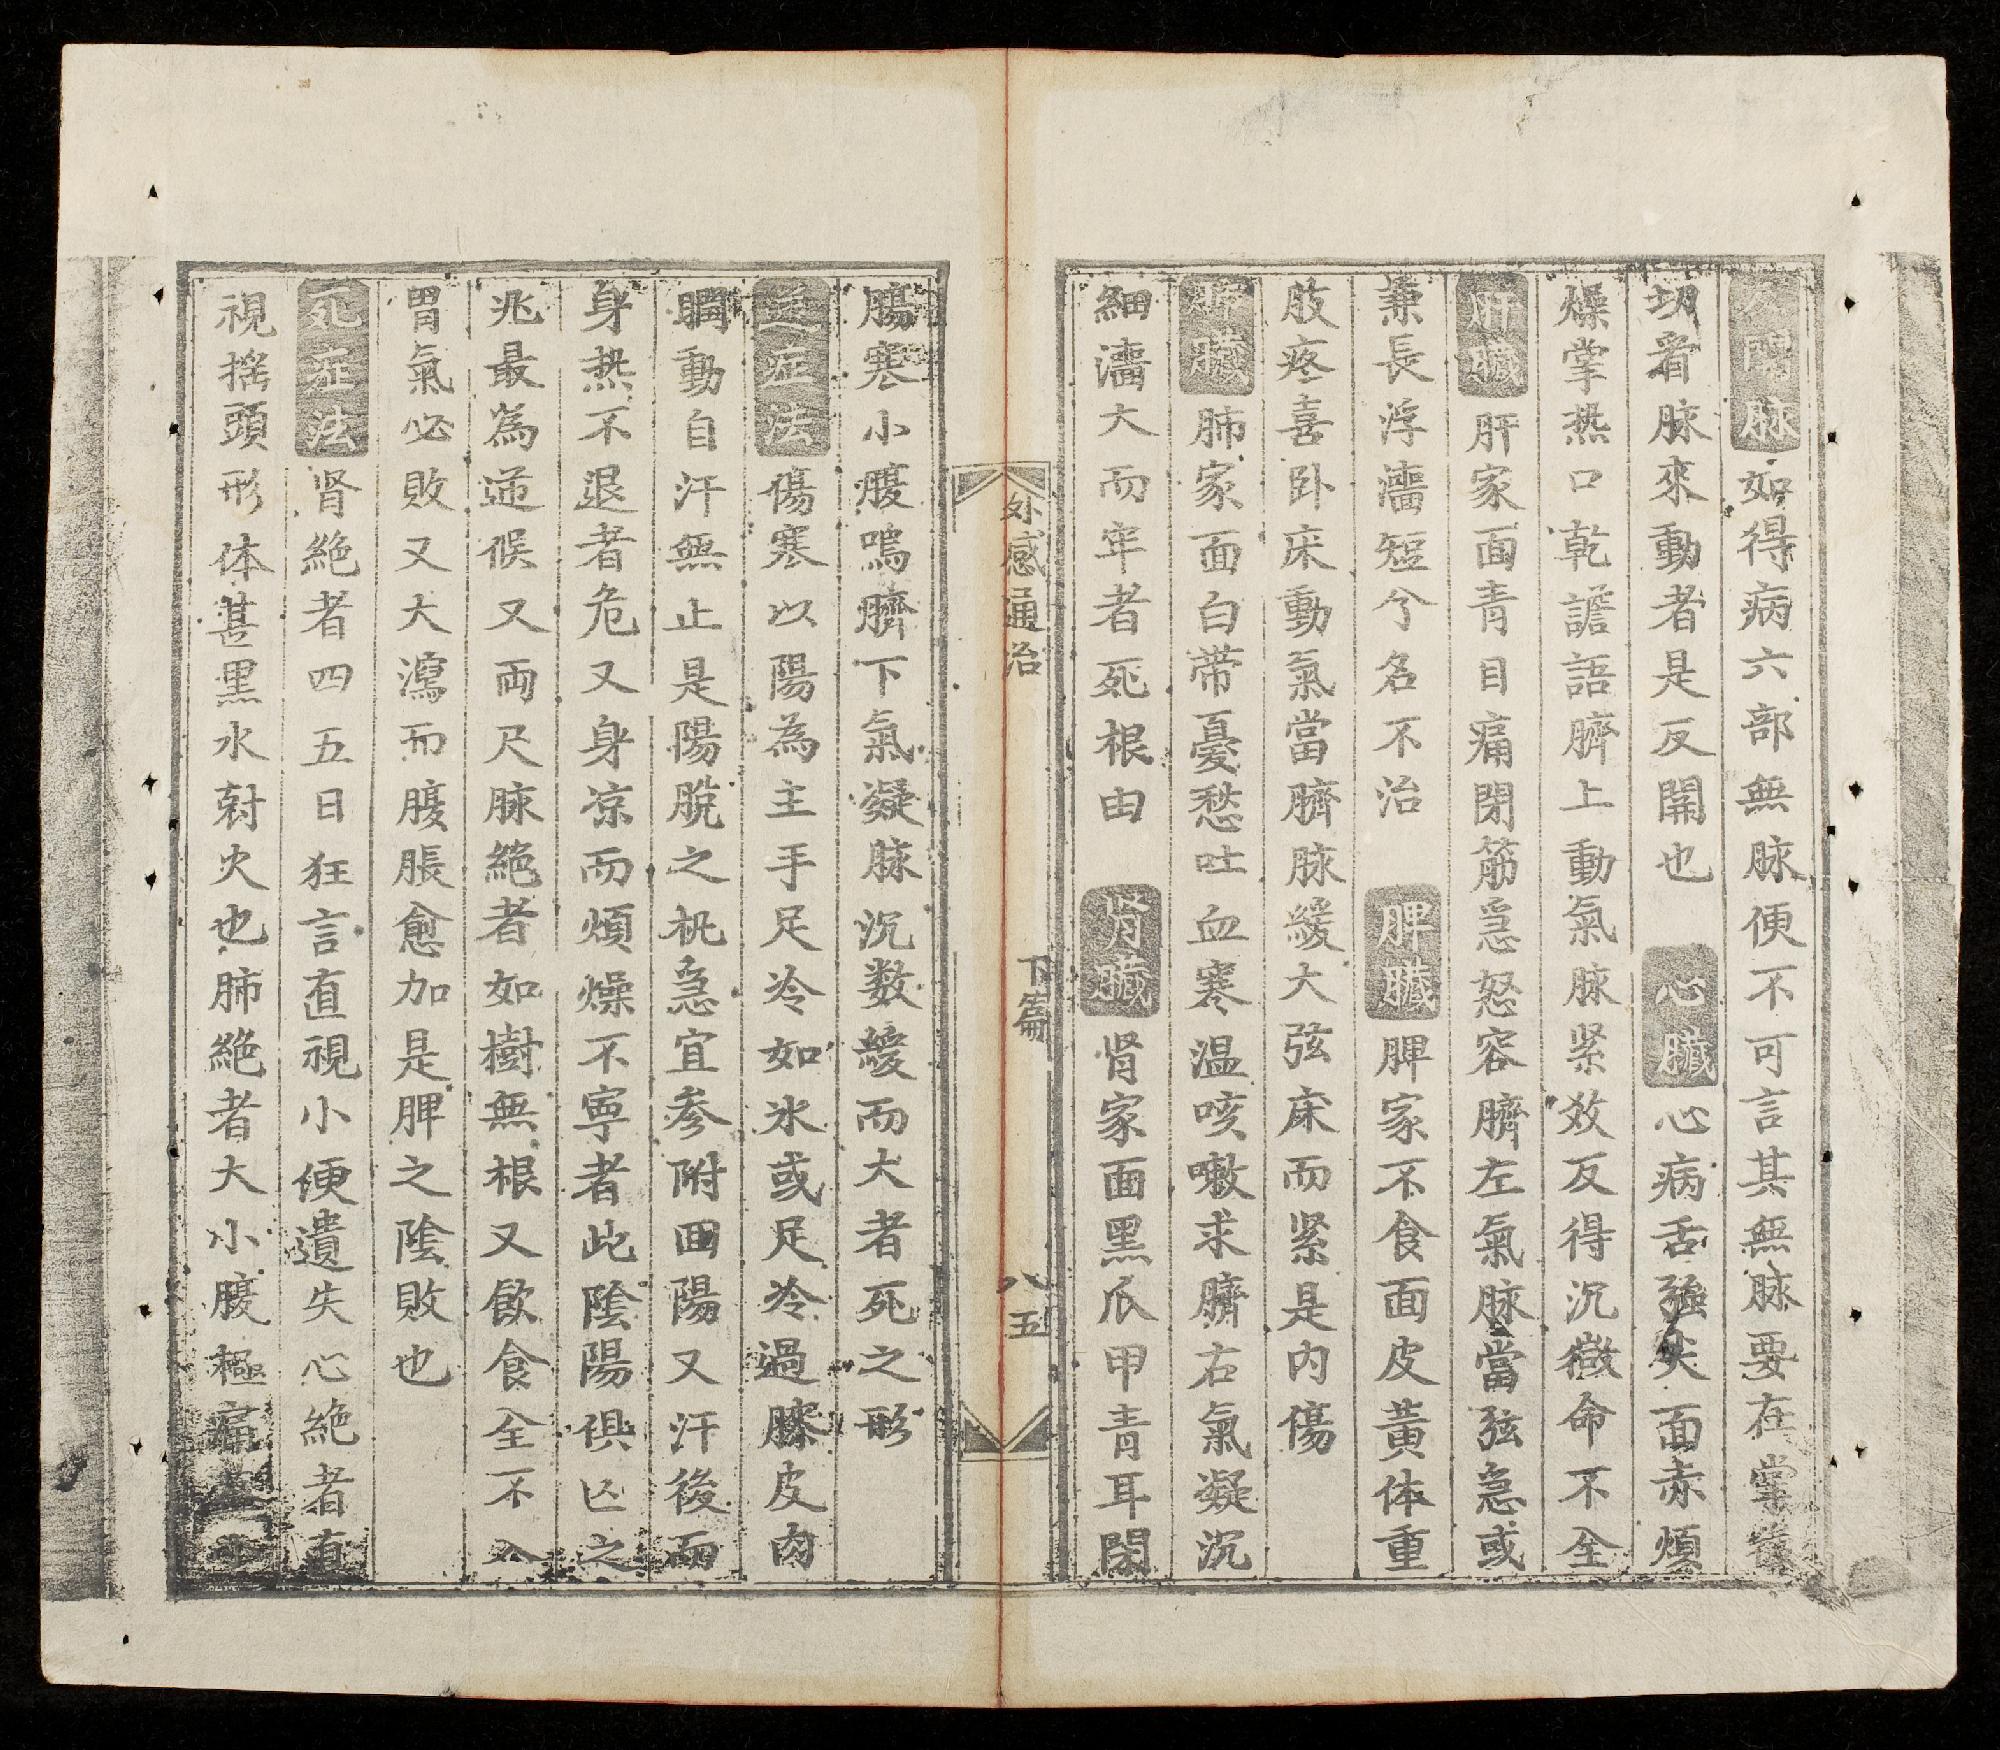 反關脉如得病六部無脉便不可言其無脉要在掌後
切看脉來動者是反関也 心臟心病舌強失面赤煩
燥掌热口乾譫語臍上動氣脉紧效反得沉微命不全
肝臟肝家面青目痛閉筋急怒容臍左氣脉當弦急或
兼長浮濇短兮名不治 脾臟脾家不食面皮黃体重
肢疼喜卧床動氣當臍脉緩大弦床而紧是内傷
肺臟肺家面白带憂愁吐血寒温咳嗽求臍右氣凝沉
細濇大而牢者死根由 肾臟肾家面黑爪甲青耳閉
外感通治 下篇 八五
腸寒小腹鳴臍下氣凝脉沉数緩而大者死之形
逆症法傷寒以陽為主手足冷如氷或足冷過膝皮肉
瞤動自汗無止是陽脫之机急宜参附囬陽又汗後而
身热不退者危又身凉而煩燥不寧者此陰陽俱亾之
兆最為逆候又両尺脉絕者如樹無根又飲食全不入
胃氣必敗又大瀉而腹脹愈加是脾之陰敗也
死症法肾絕者四五日狂言直視小便遺失心絕者直
視摇頭形体甚黑水尅火也肺絕者大小腹極痛